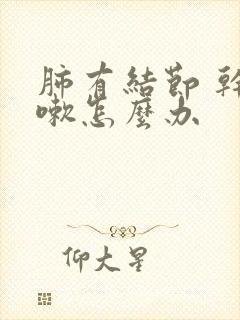 肺有結節 幹
嗽怎麼办
仰大星